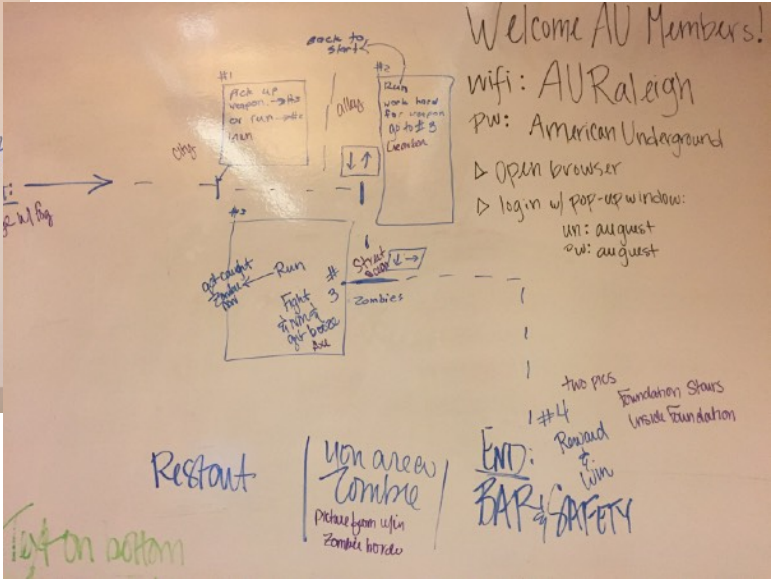 Welcome AU Members!
wifi: AURaleigh
pw: American Underground
▷ Open browser
▷ login w/ pop-up window:
un: august
pw: august
Back to
start
#1
Pick up
weapon
or run
city
alley
↓↑
#2
Run
work hard
for weapon
go to #3
#3
got caught
Zombie
Run
#
3
Fight
& run &
get booze
Street
↓→
Zombies
two pics
Foundation Stairs
Inside Foundation
#4
Reward
&
Win
END:
BAR & SAFETY
Restart
Zombie
picture from w/in
Zombie border
Text on bottom